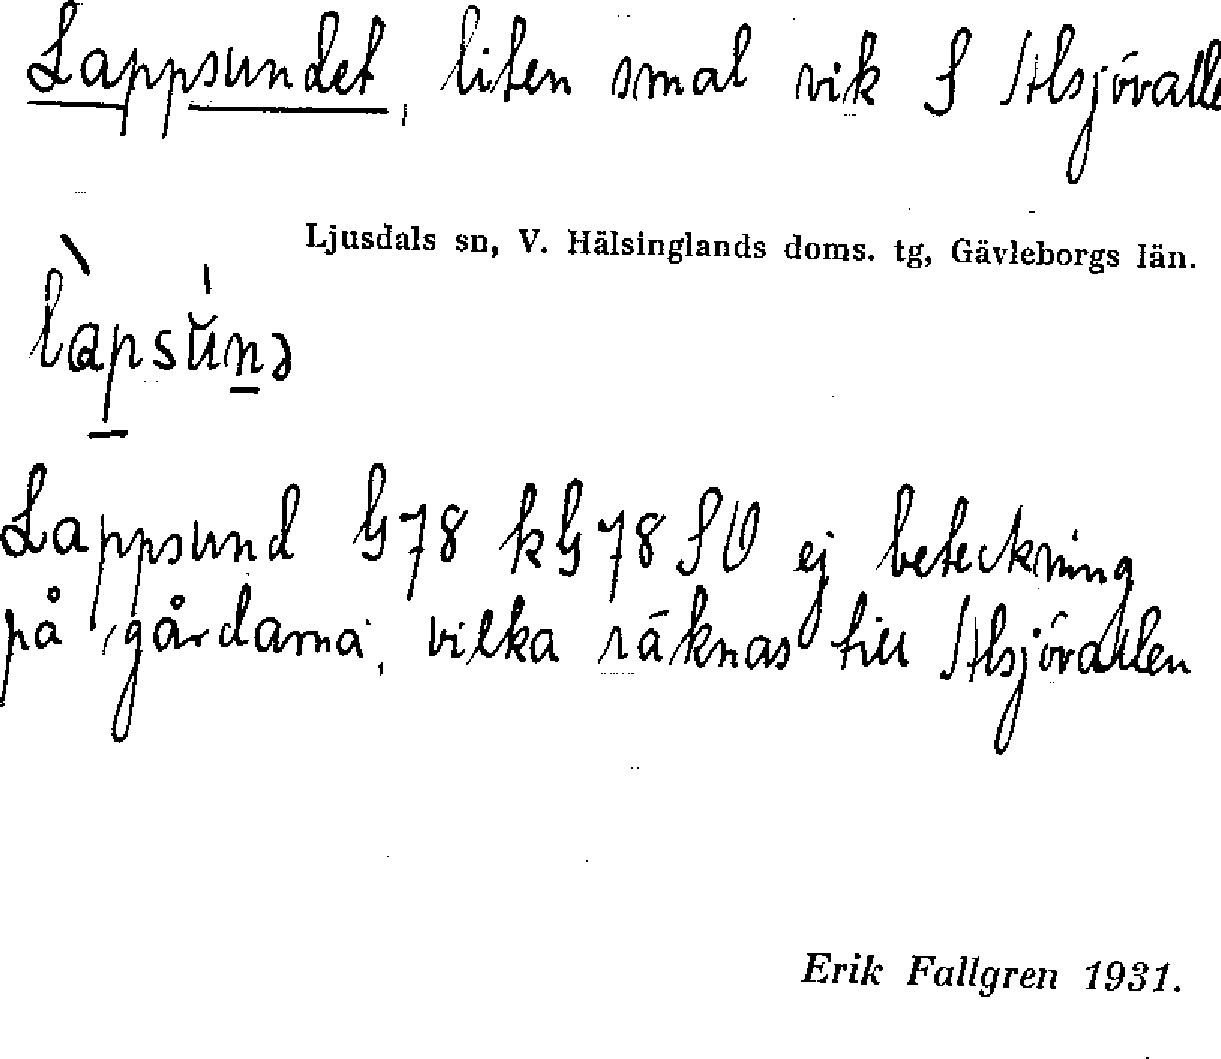 Lappsundet, liten smal vik S Alsjövalle
Ljusdals sn, V. Hälsinglands doms. tg, Gävleborgs län.
làpsŭnə
Lappsund G78 kG78 SV ej beteckning
på gårdarna, vilka räknas till Alsjövallen
Erik Fallgren 1931.